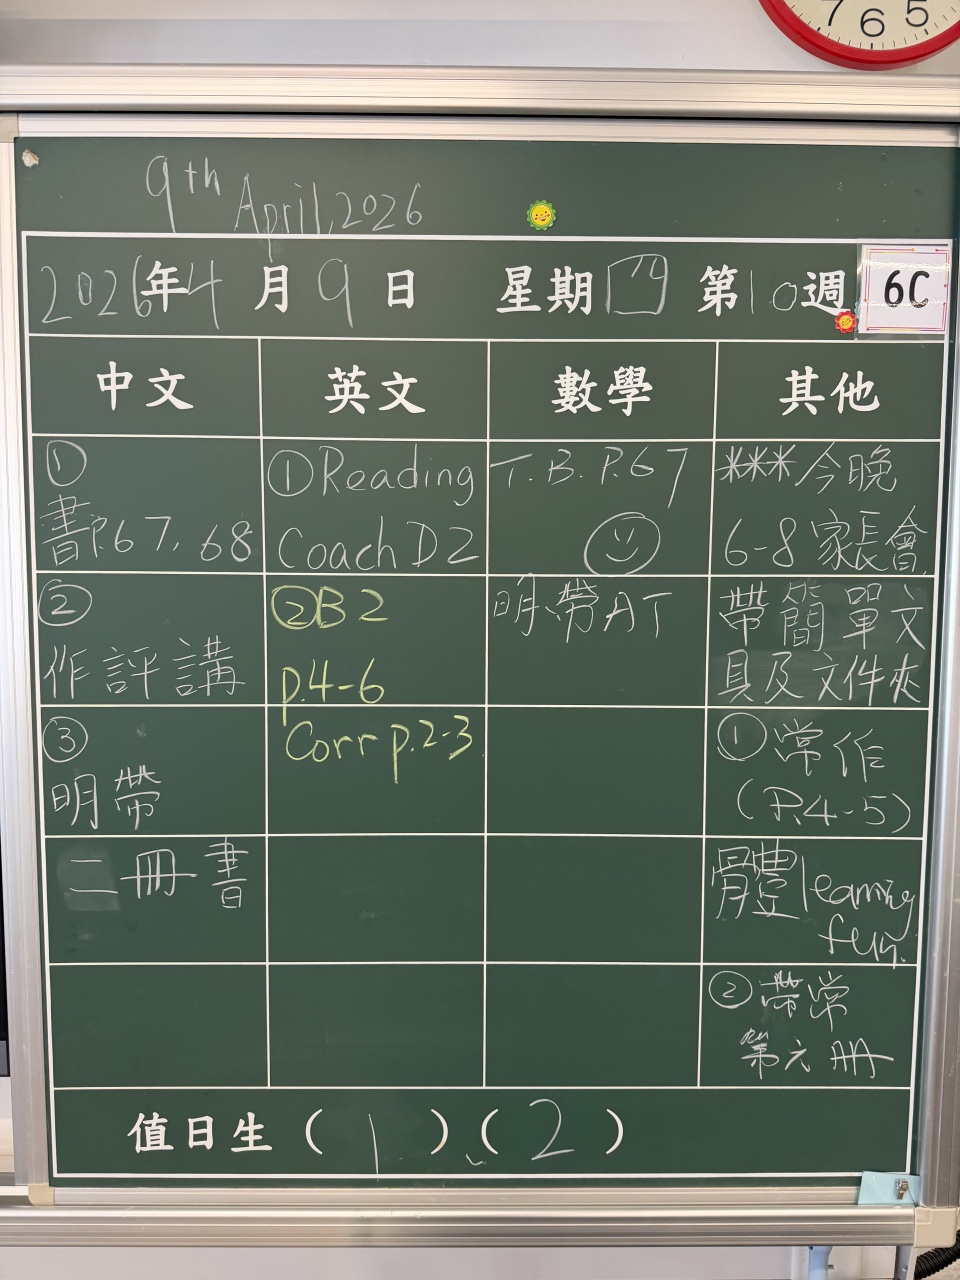 7 6 5
9th April, 2026
2026年4月9日 星期四 第10週 6C
中文 英文 數學 其他
①
書P.67, 68
②
作評講
③
明帶
二冊書
①Reading
Coach D2
②B2
p.4-6
Corr p.2-3
T.B.P.67
明帶AT
***今晚
6-8家長會
帶簡單文
具及文件夾
①常作
(P.4-5)
體learning
fun.
②帶常
第六冊
值日生(1)、(2)